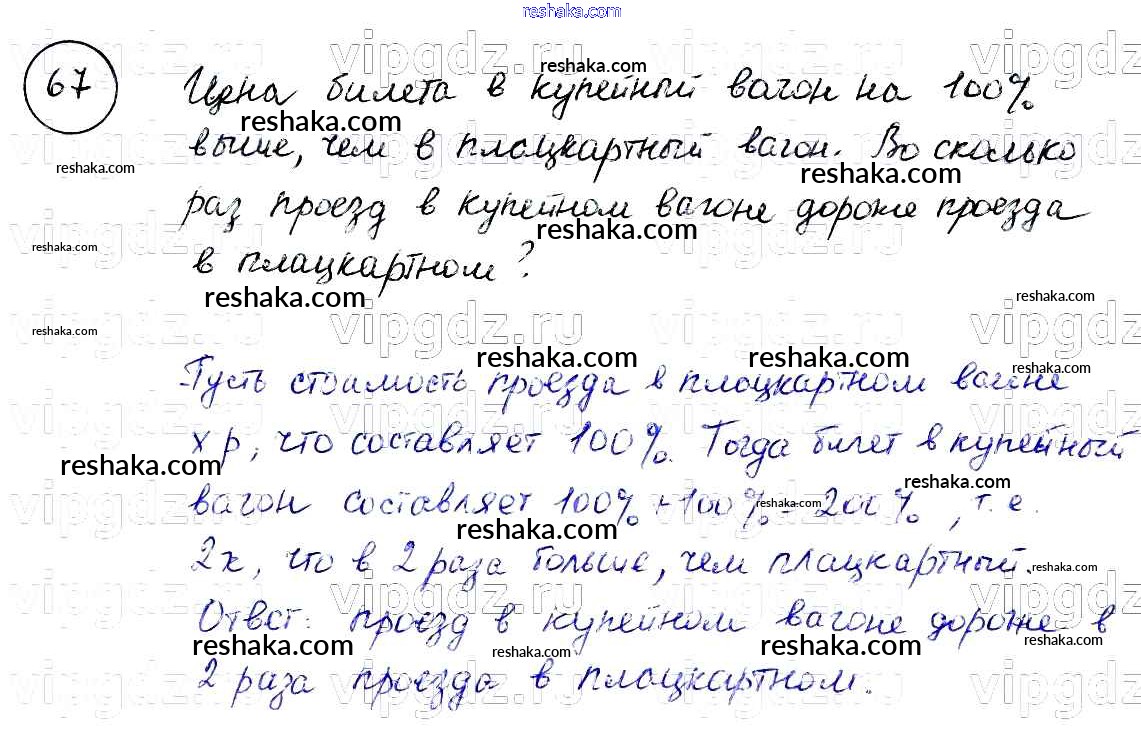 reshaka.com
67
Цена билета в купейный вагон на 100%
выше, чем в плацкартный вагон. Во сколько
раз проезд в купейном вагоне дороже проезда
в плацкартном?
Пусть стоимость проезда в плацкартном вагоне
х р, что составляет 100%. Тогда билет в купейный
вагон составляет 100% + 100% = 200%, т.е.
2х, что в 2 раза больше, чем плацкартный.
Ответ: проезд в купейном вагоне дороже в
2 раза проезда в плацкартном.